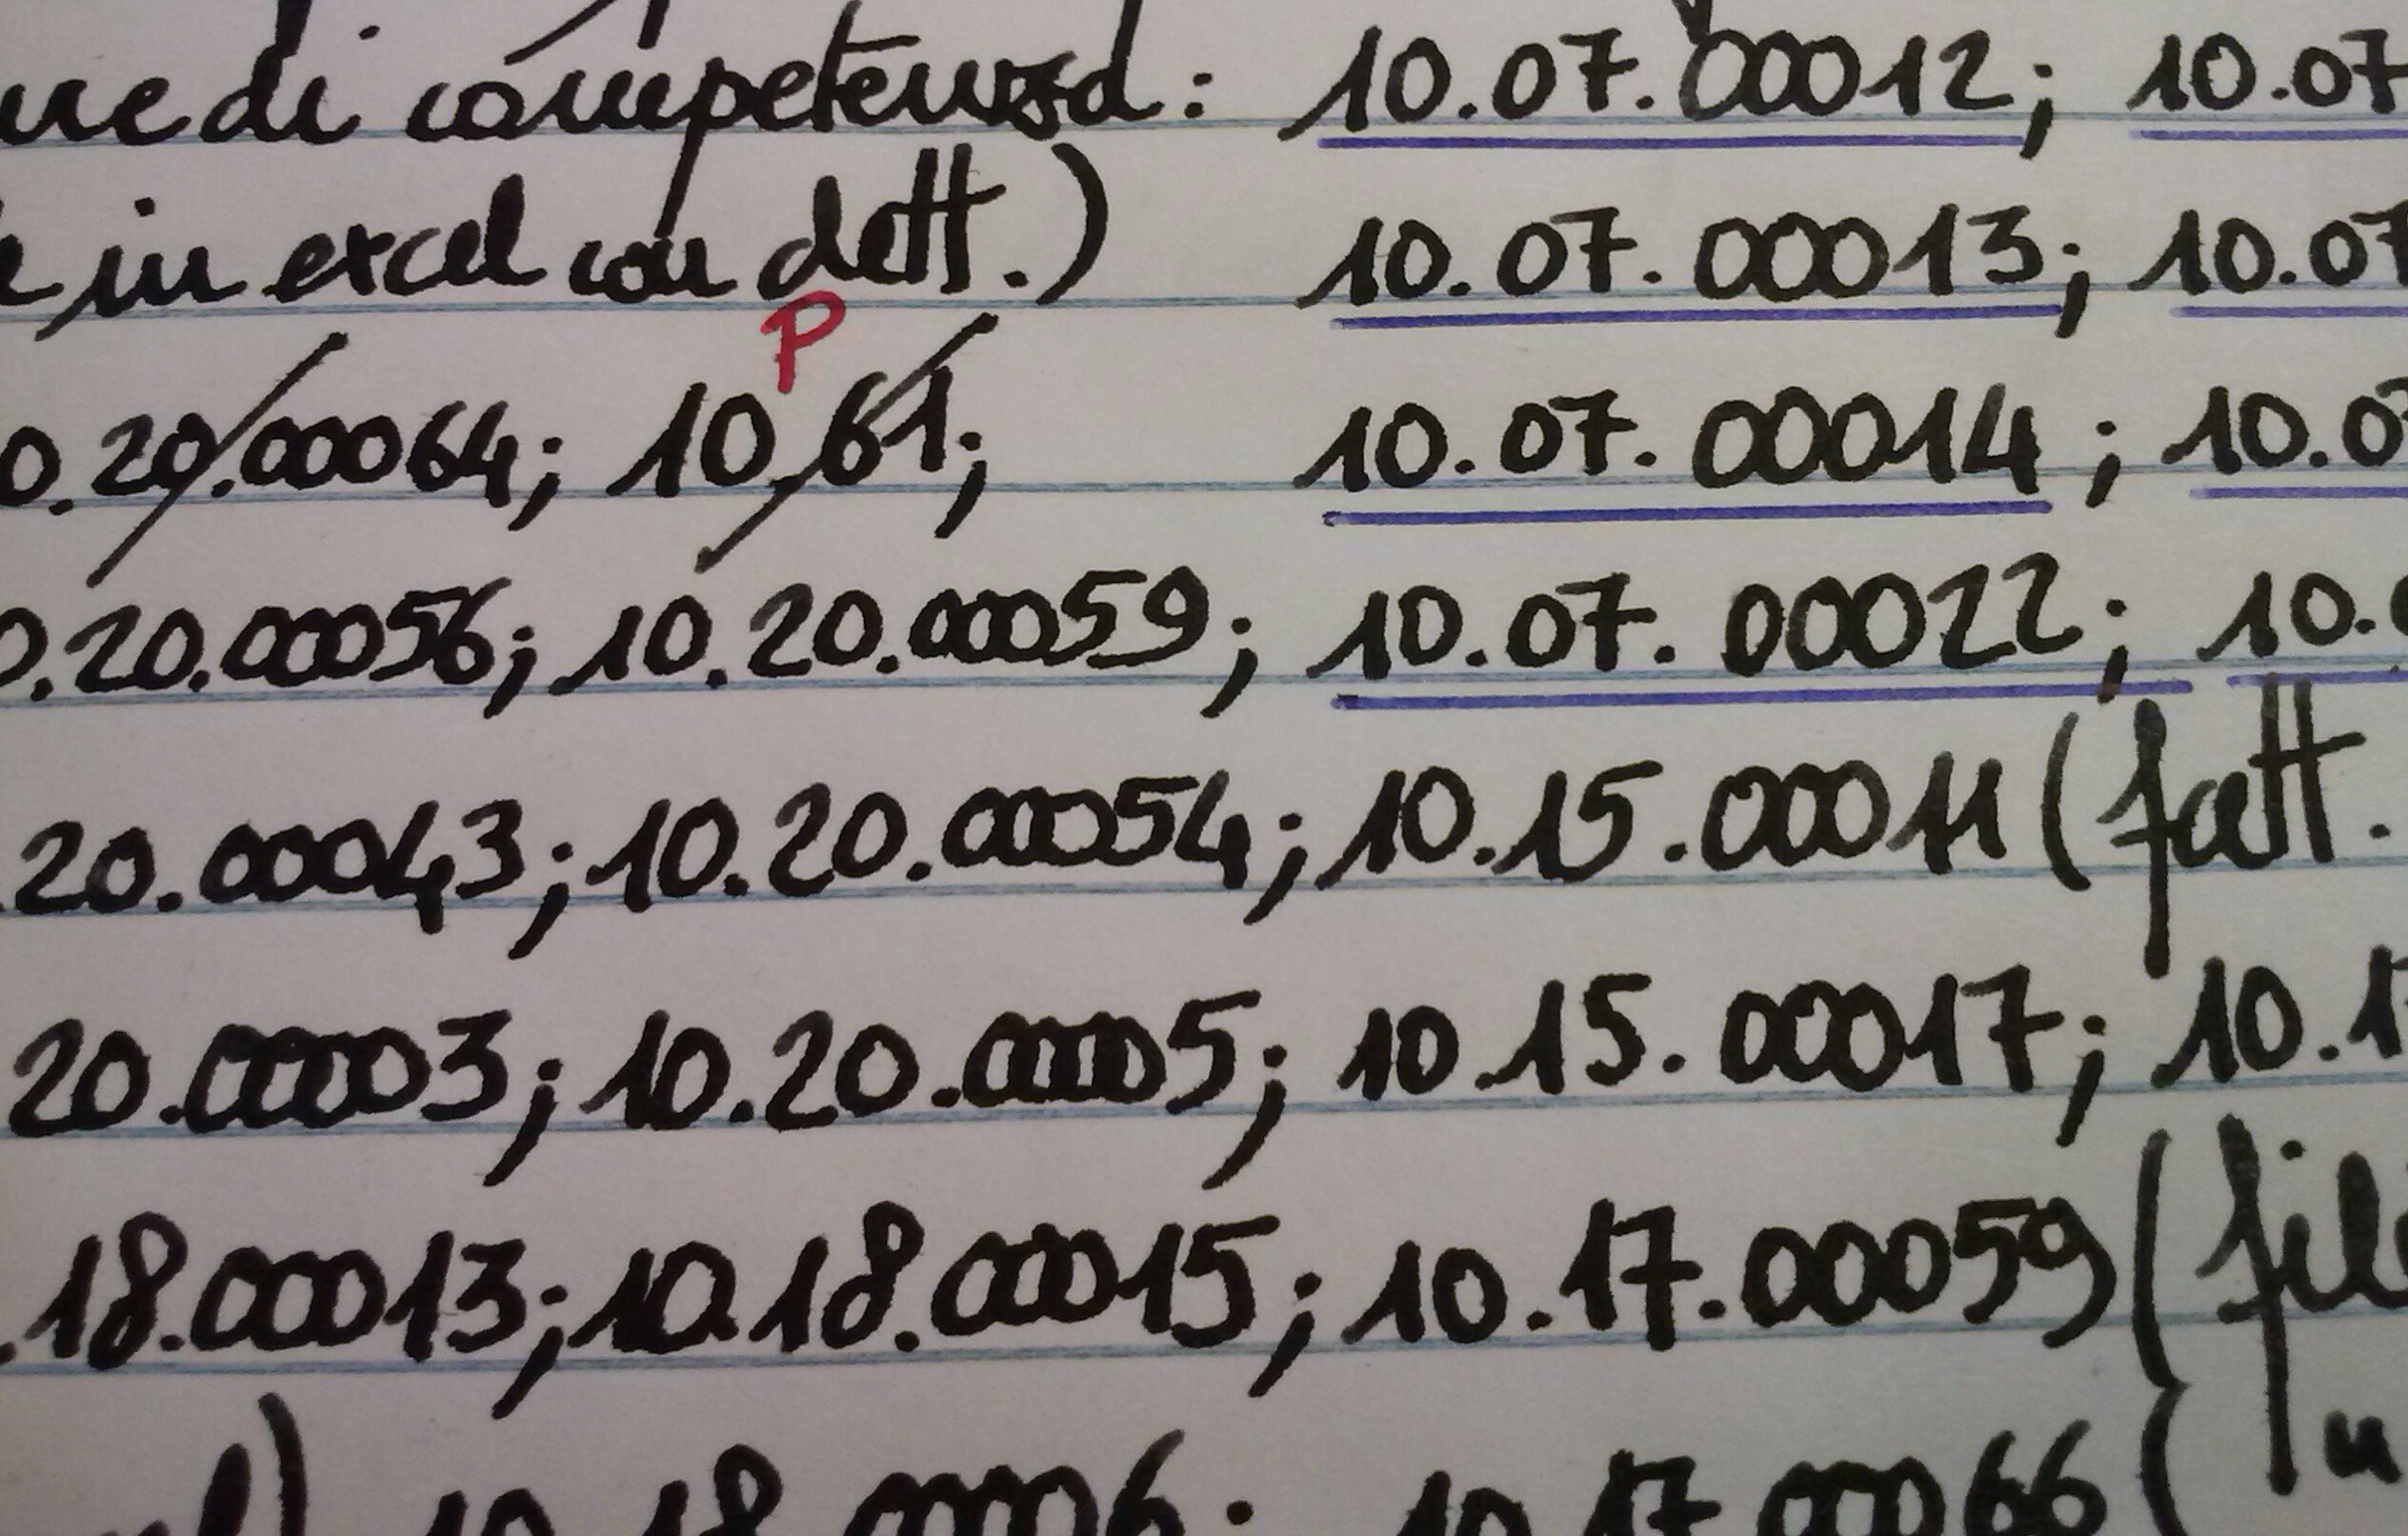 ne di competenza: 10.07.00012; 10.07
in excel con dett.) 10.07.00013; 10.07
P
0.20.00064; 10.61; 10.07.00014; 10.0
0.20.00056; 10.20.00059; 10.07.00022; 10.
20.00043; 10.20.00054; 10.15.00011 (fatt.
20.00003; 10.20.00005; 10.15.00017; 10.1
.18.00013; 10.18.00015; 10.17.00059 (file
) 10.18.00006; 10.17.00066 (